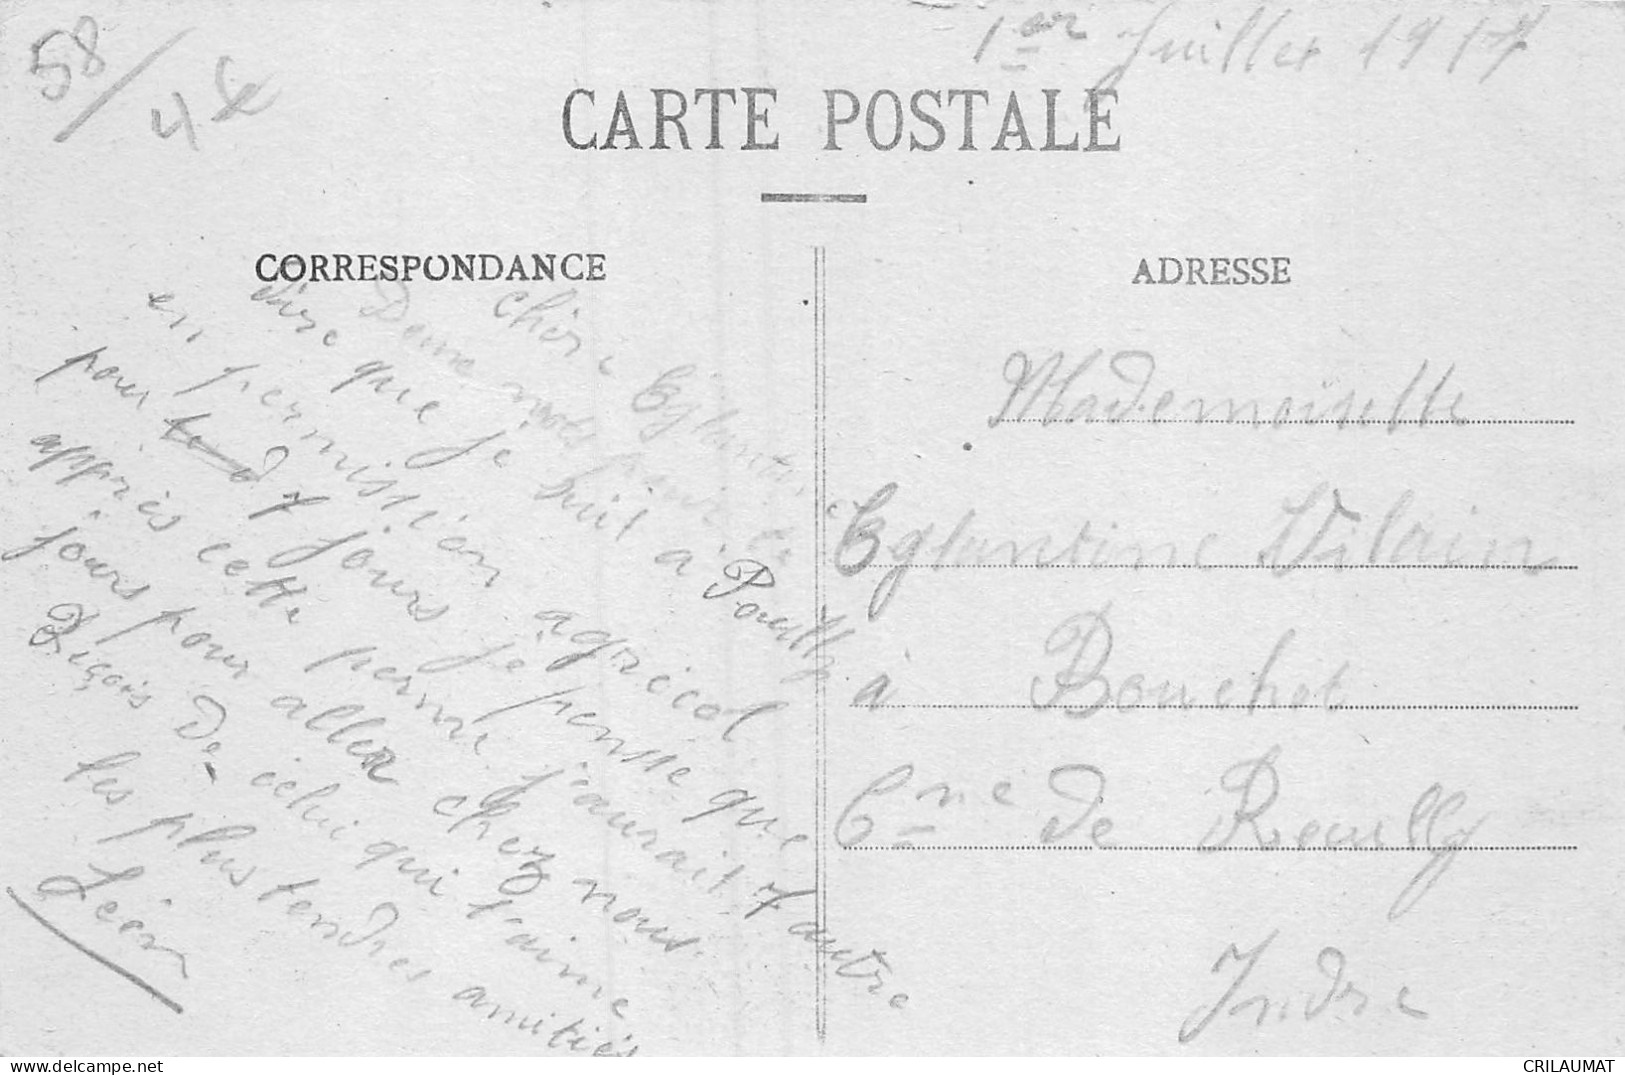 58/44
1er Juillet 1917
CARTE POSTALE
CORRESPONDANCE
ADRESSE
chère Eglantine
Deux mots pour te
dire que je suit à Pouilly
en permission agricol
pour 7 jours je pense que
appres cette perme j'aurait 7 autre
jours pour aller chez nous.
Riçois De celui qui t'aime
les plus tendres amitiés
Léon
Mademoiselle
Eglantine Vilain
à Bouchet
Cne de Reuilly
Indre
CRILAUMAT